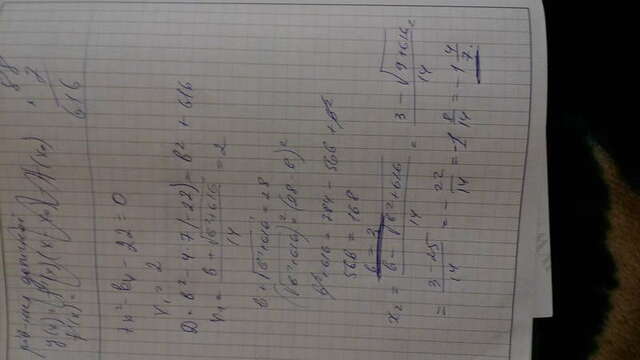 рів-ння дотичної
y(x) = f'(x₀)(x - x₀) + f(x₀)
f'(x) =
88
× 7
616
7x² - bx - 22 = 0
x₁ = 2
D = b² - 4·7·(-22) = b² + 616
x₁ = (b + √(b²+616))/14 = 2
b + √(b²+616) = 28
(√(b²+616))² = (28 - b)²
b² + 616 = 784 - 56b + b²
56b = 168
b = 3
x₂ = (b - √(b²+616))/14 = (3 - √(9+616))/14 =
= (3-25)/14 = -22/14 = -1 8/14 = -1 4/7.